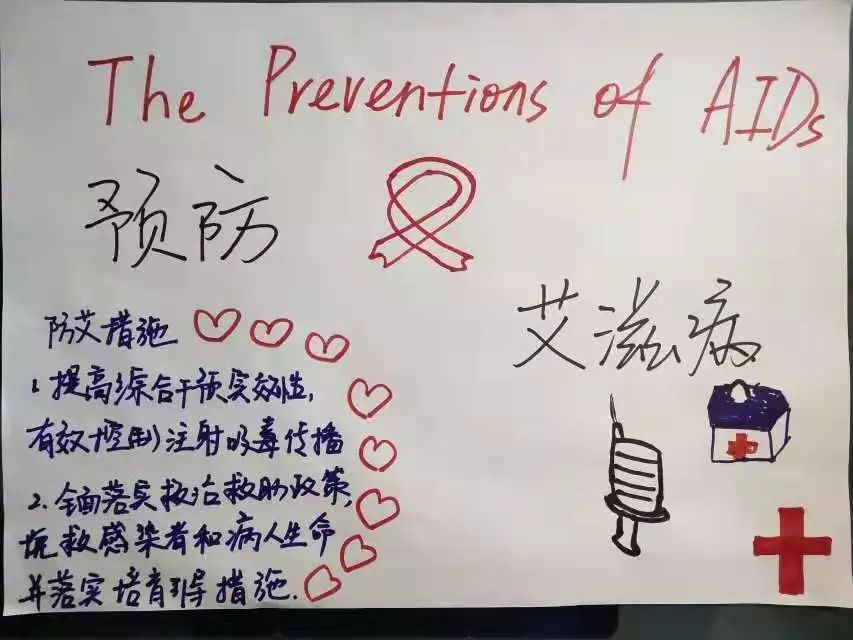 The Preventions of AIDs
预防
艾滋病
防艾措施
1. 提高综合干预实效性,
有效控制注射吸毒传播
2. 全面落实救治救助政策,
挽救感染者和病人生命
并落实培育引导措施.